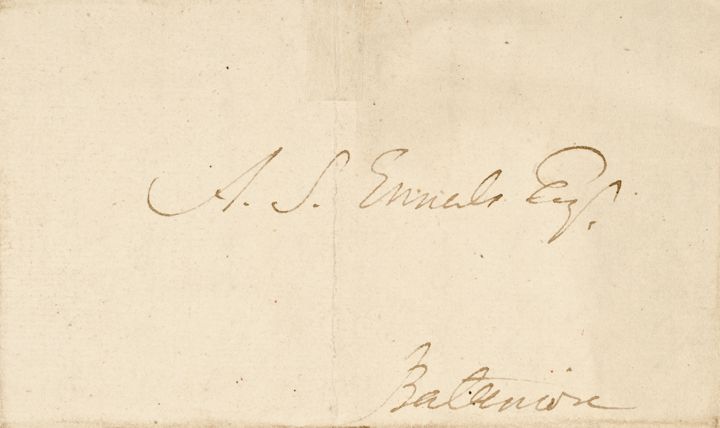 A. S. Ennals Esq.
Baltimore